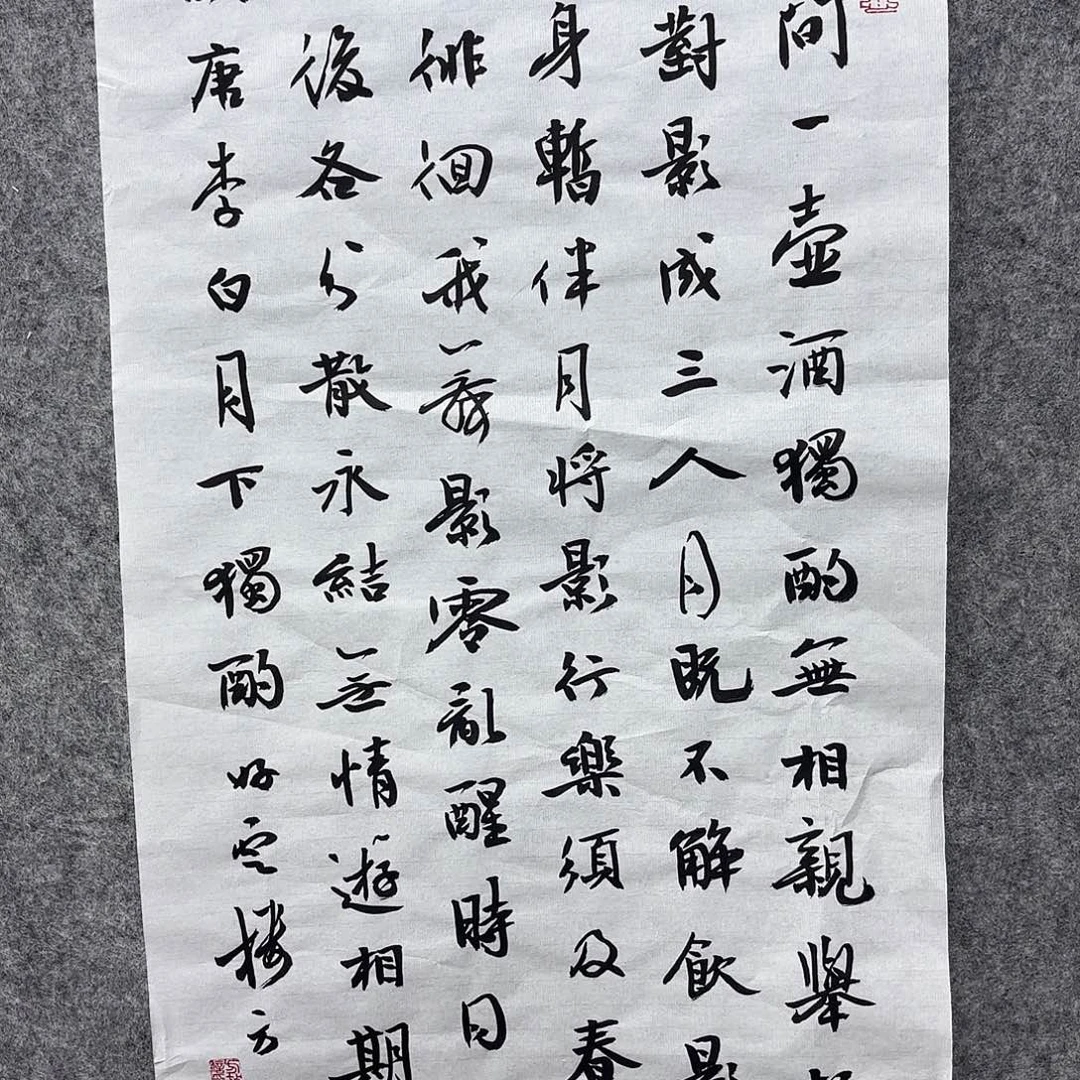 間一壺酒獨酌無相親舉
對影成三人月既不解飲影
身暫伴月將影行樂須及春
徘徊我舞影零亂醒時同
後各分散永結無情遊相期
唐李白月下獨酌好雲樓方